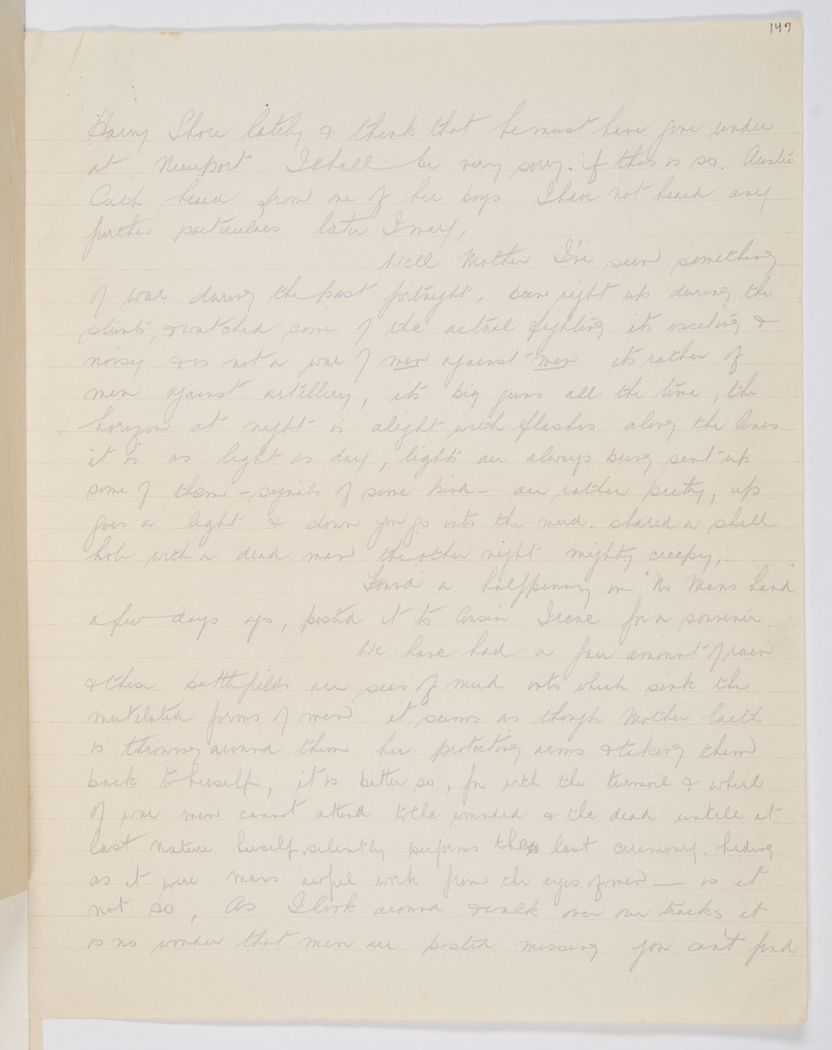 147
Harry Shore lately & think that he must have gone under
at Nieuport I shall be very sorry if this is so. Auntie
heard from one of her boys I have not heard any
further particulars later I may,
Well Mother I've seen something
of war during the past fortnight, been right up during the
stunts, & watched some of the actual fighting its exciting &
noisy & is not a war of men against men its rather of
men against artillery, its big guns all the time, the
horizon at night is alight with flashes along the lines
it is as light as day, lights are always being sent up
some of them – signals of some kind – are rather pretty, up
goes a light & down you go into the mud. shared a shell
hole with a dead man the other night mighty creepy,
Found a halfpenny on "No Mans Land"
a few days ago, posted it to Cousin Irene for a souvenir.
We have had a fair amount of rain
& these battlefields are seas of mud into which sink the
mutilated forms of men it seems as though Mother Earth
is throwing around them her protecting arms & taking them
back to herself, it is better so, for with the turmoil & whirl
of war men cannot attend to the wounded & the dead until at
last nature herself silently performs the last ceremony. hiding
as it were mans awful work from the eyes of men — is it
not so, As I look around & walk over our tracks it
is no wonder that men are posted missing you can't find